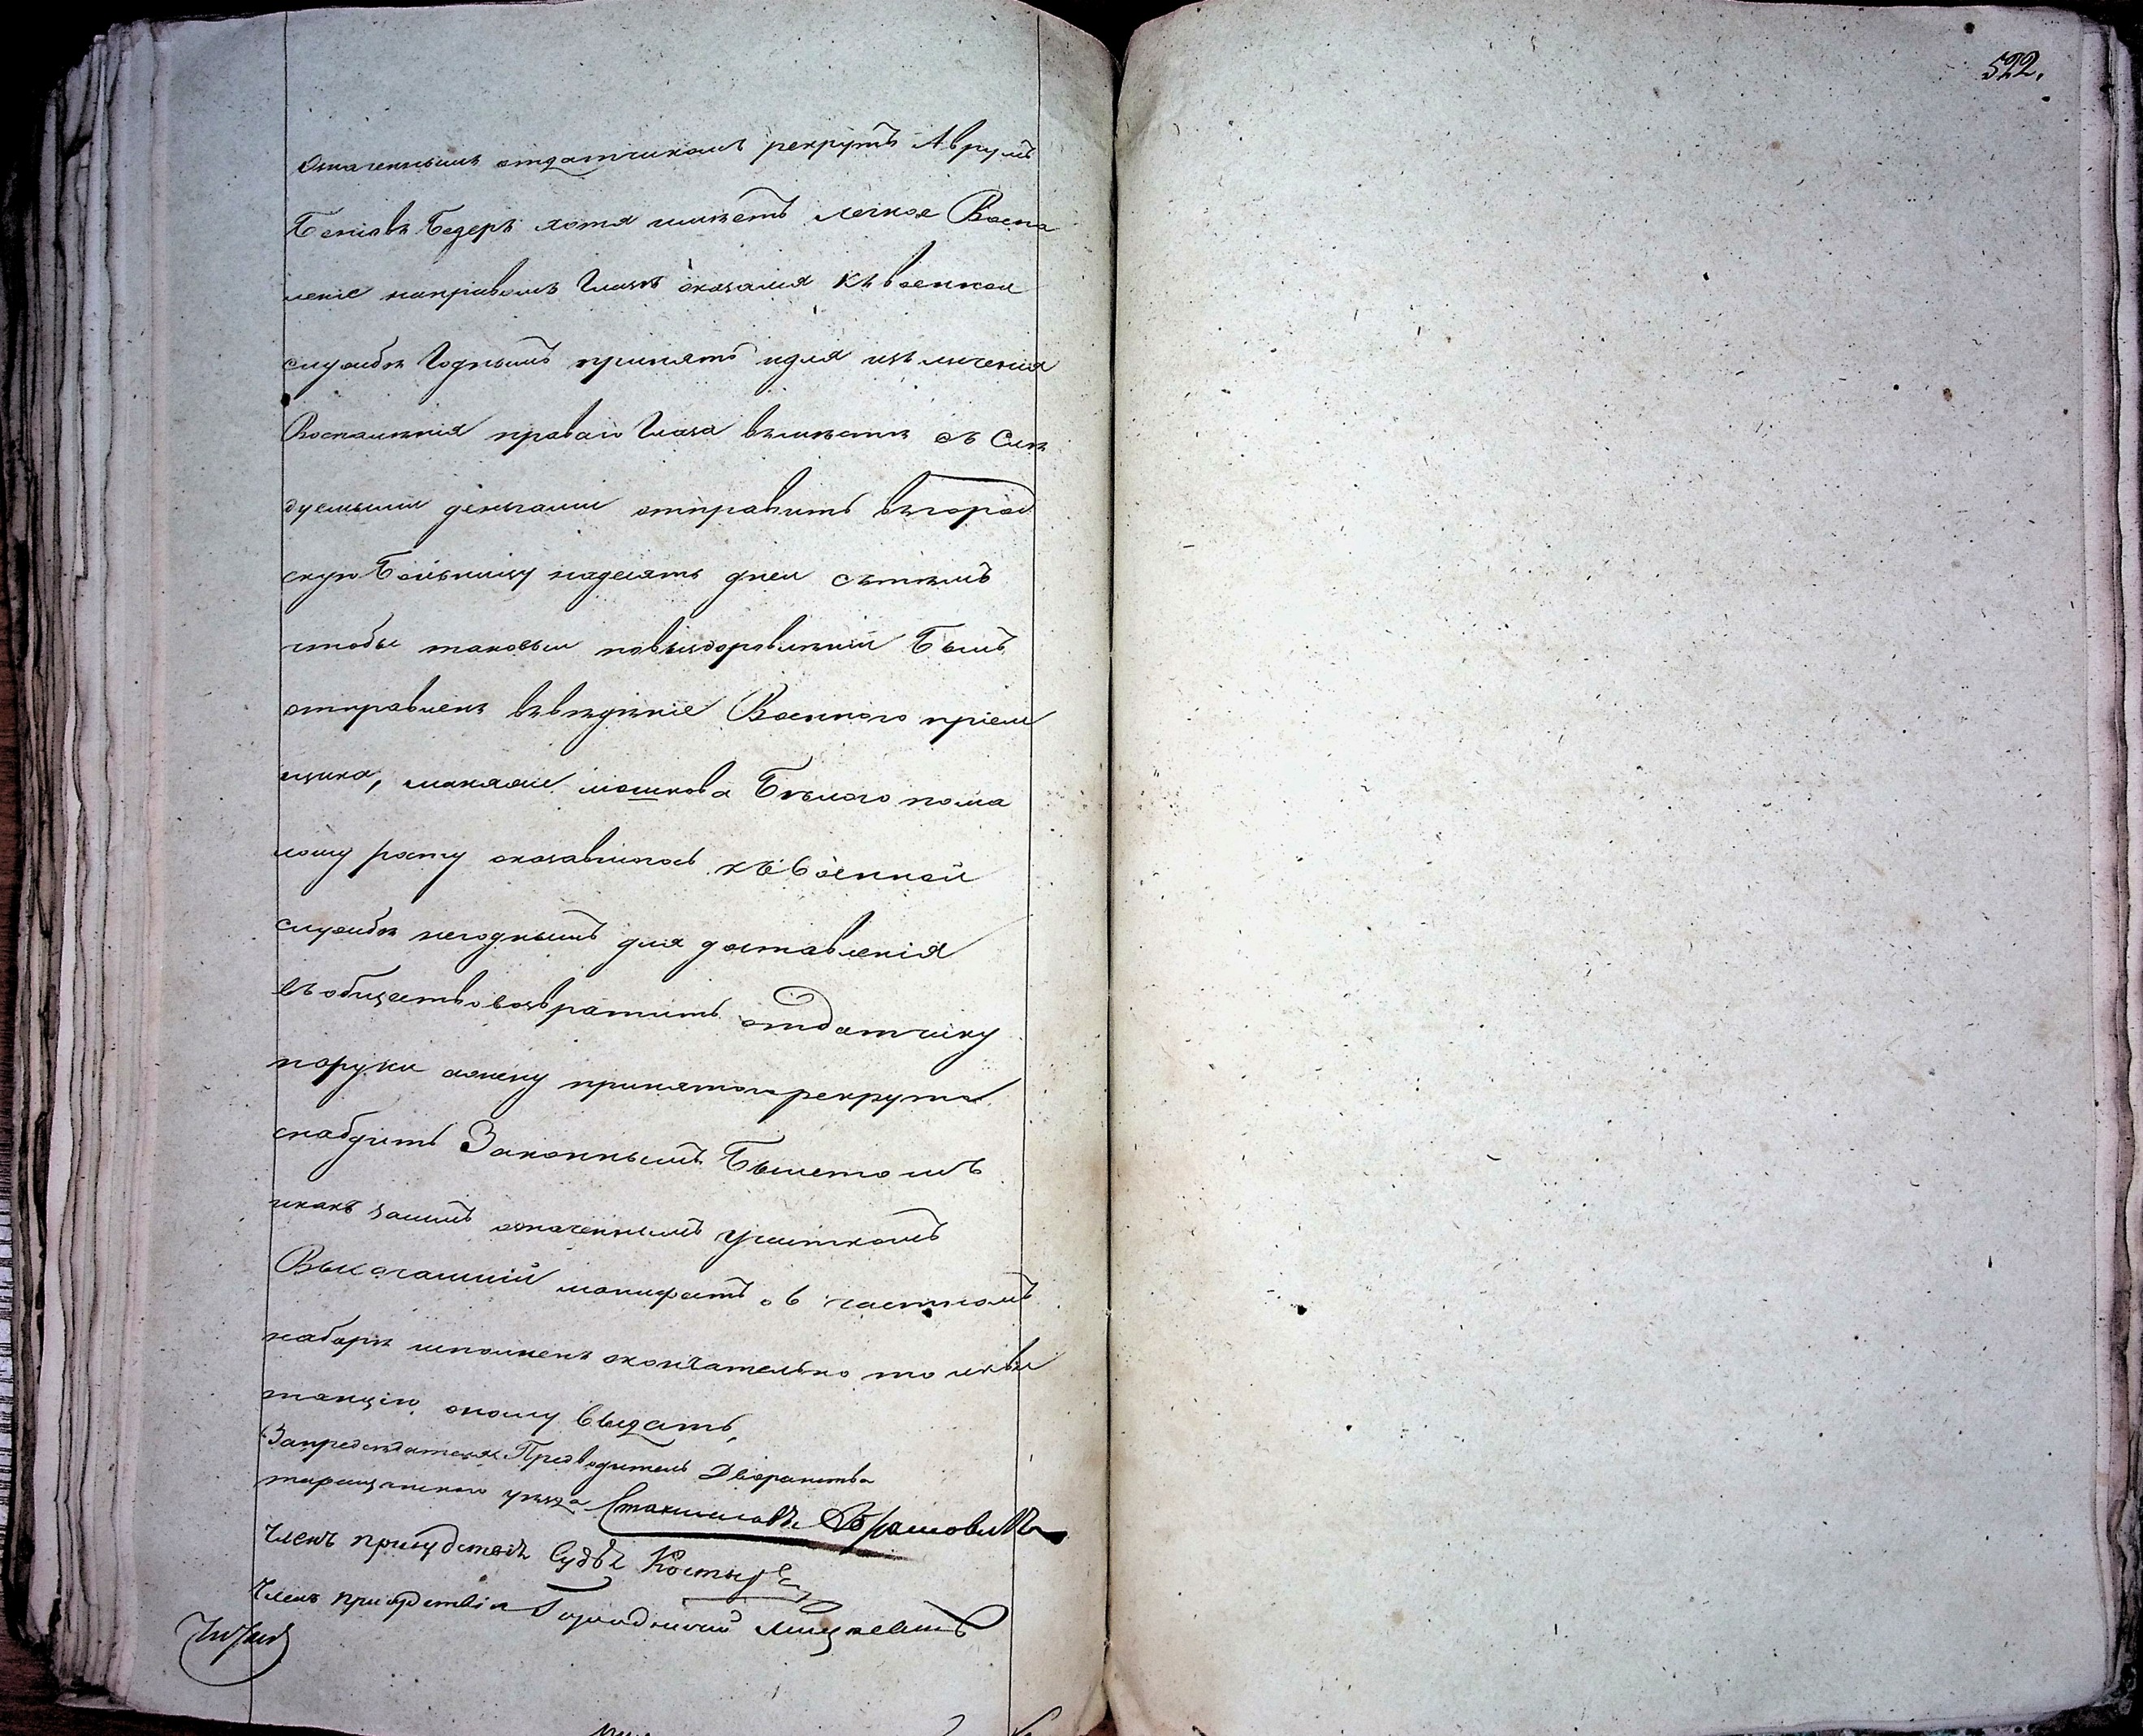 522.
Означеннымъ отдатчикомъ рекрутъ Аврумъ
Беніовъ Бедеръ хотя имѣетъ легкое Воспа
леніе направомъ Глазѣ оказался къ военной
службѣ Годнымъ принять идля излеченія
Воспаленія праваго Глаза вмѣсте съ Слѣ
дуемыми деньгами отправить въгород
скую Больницу надесять дней сътѣмъ
чтобы таковый повыздоровленіи Былъ
отправленъ въвѣденіе Военного пріем
щика, Мошкова Бѣлого пома
лому росту оказавшегось къ военной
службѣ негоднымъ для доставленія
въ общество возвратить отдатчику
поруки принятогорекрута
снабдить Законнымъ Билетомъ
икакъ засимъ означеннымъ участкомъ
Высочайшій манифестъ о частномъ
наборѣ исполненъ окончательно то икви
танцію оному выдать,
Запредседателя Предводитель Дворянства
таращанского уезда Станиславъ
Членъ присудствія Судья
Членъ присудствія Городничий